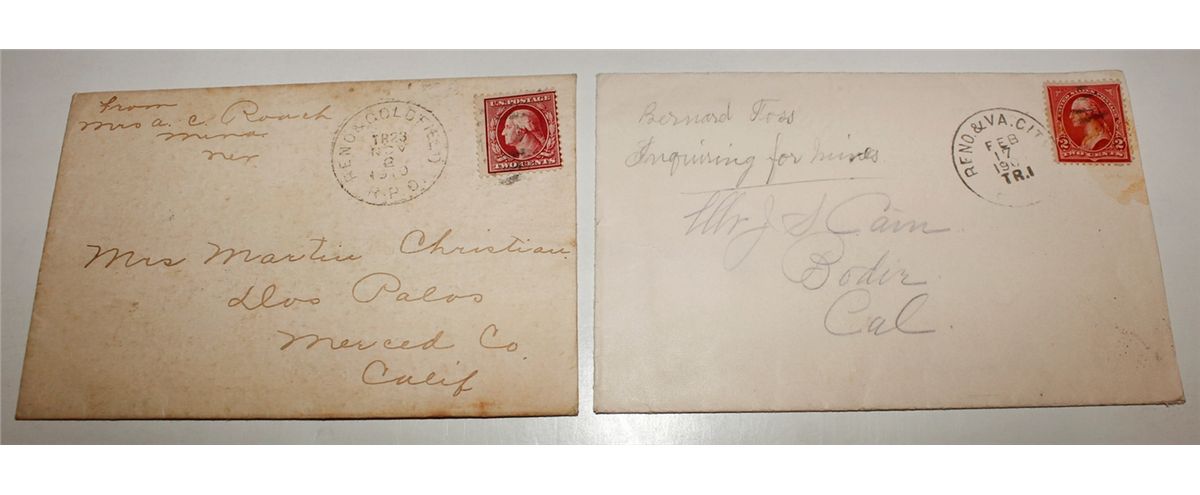 from
Mrs A. C. Roach
Mina
Nev
RENO & GOLDFIELD
TR23
NOV
8
1910
R.P.O.
U.S. POSTAGE
TWO CENTS
Mrs Martin Christian
Dos Palos
Merced Co
Calif
Bernard Foss
Inquiring for mines
RENO & VA. CIT
FEB
17
190
TR.1
2 2
TWO CENTS
Mr J S Cain
Bodie
Cal.